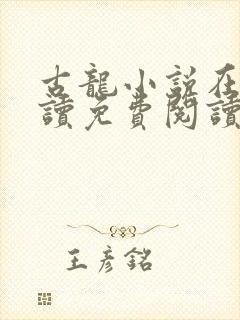 古龍小說在
讀免費閱讀
王彥銘